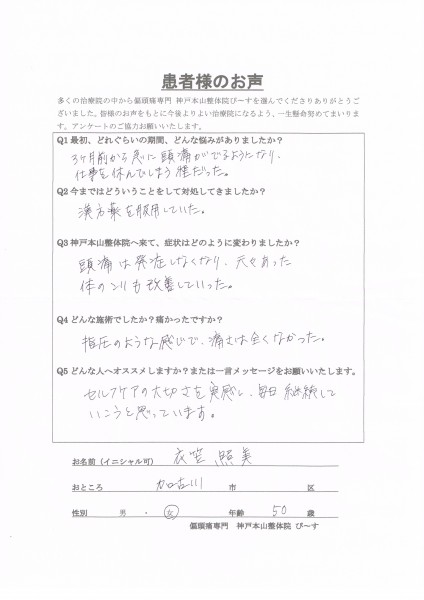 患者様のお声
多くの治療院の中から偏頭痛専門 神戸本山整体院ぴ～すを選んでくださりありがとうご
ざいました。皆様のお声をもとに今後よりよい治療院になるよう、一生懸命努めてまいりま
す。アンケートのご協力お願いいたします。
Q1 最初、どれぐらいの期間、どんな悩みがありましたか？
3ヶ月前から急に頭痛がでるようになり、
仕事を休んでしまう程だった。
Q2 今まではどういうことをして対処してきましたか？
漢方薬を服用していた。
Q3 神戸本山整体院へ来て、症状はどのように変わりましたか？
頭痛は発症しなくなり、元々あった
体のコリも改善していった。
Q4 どんな施術でしたか？痛かったですか？
指圧のような感じで、痛さは全くなかった。
Q5 どんな人へオススメしますか？または一言メッセージをお願いいたします。
セルフケアの大切さを実感し、毎日継続して
いこうと思っています。
お名前（イニシャル可） 衣笠 照美
おところ 加古川 市 区
性別 男 ・ 女 年齢 50 歳
偏頭痛専門 神戸本山整体院 ぴ～す